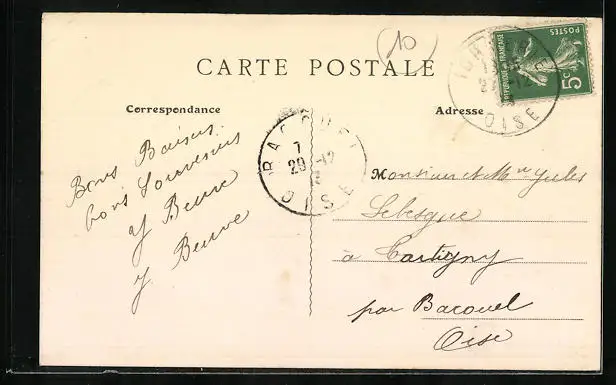 10
CARTE POSTALE
Correspondance
Adresse
POSTES
REPUBLIQUE FRANÇAISE
5c
OISE
7
29 -12
OISE
Bons Baisers
bons Souvenirs
Monsieur et Mme Jules
Lebesgue
à Cartigny
par Bacouel
Oise